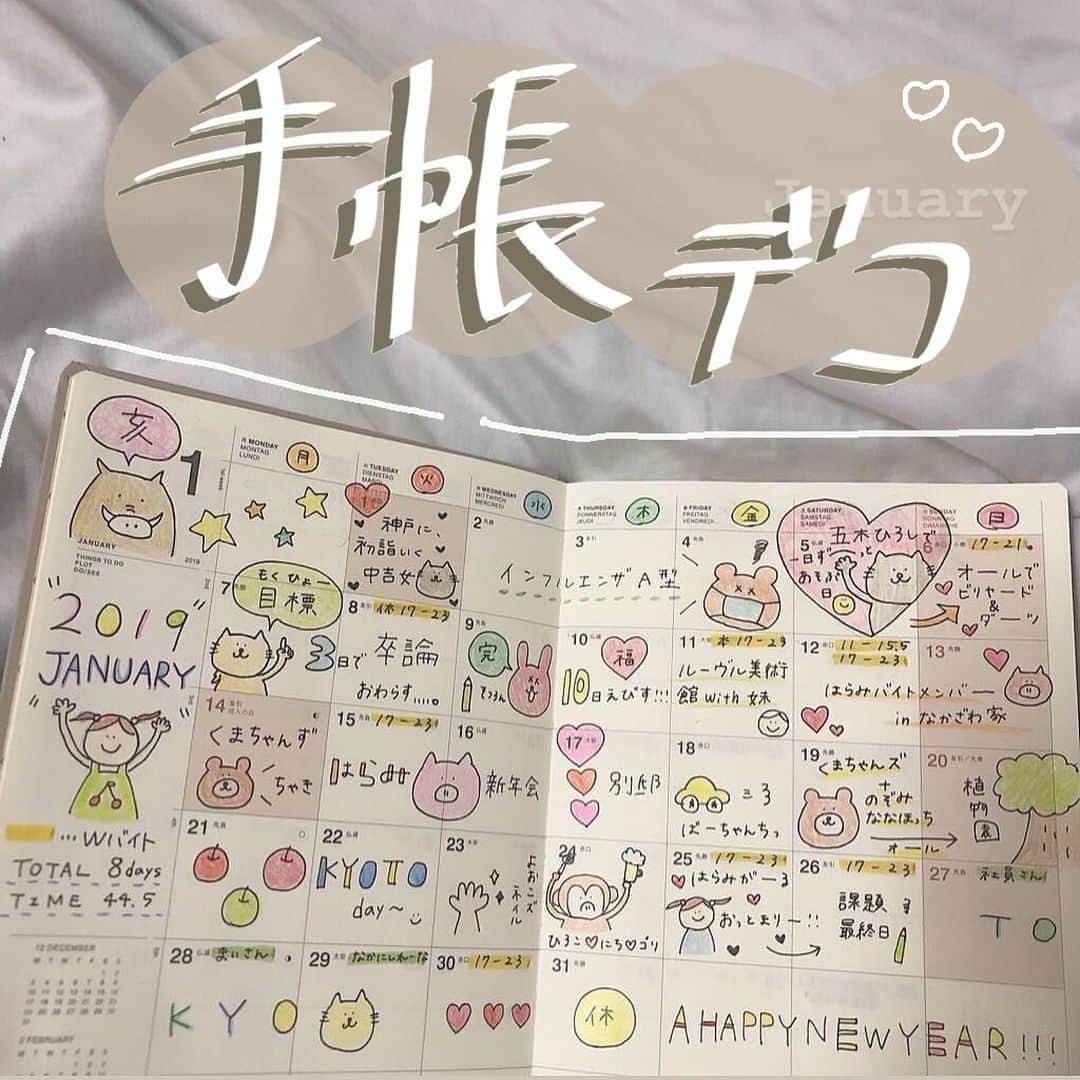 手帳デコ
January
亥
1
JANUARY
2019
THINGS TO DO
PLOT
DO/SEE
"2019"
JANUARY
…Wバイト
TOTAL 8days
TIME 44.5
12 DECEMBER
M T W T F S S
2 FEBRUARY
M T W T F S S
MONDAY
MONTAG
LUNDI
月
TUESDAY
DIENSTAG
火
WEDNESDAY
MITTWOCH
MERCREDI
水
THURSDAY
DONNERSTAG
JEUDI
木
FRIDAY
FREITAG
VENDREDI
金
SATURDAY
SAMSTAG
SAMEDI
SUNDAY
SONNTAG
DIMANCHE
日
1
神戸に、
初詣いく
中吉女
2
インフルエンザA型
3
4
5
五木ひろしで
一日ずっと
あそぶ
日
6
17-21
オールで
ビリヤード
&
ダーツ
7
もくひょー
目標
8
休17-23
3日で卒論
おわらす....。
9
完
そつろん
10
福
10日えびす!!!
11
本17-23
ルーヴル美術
館with妹
12
11-15.5
17-23
はらみバイトメンバー
in なかざわ家
13
14
成人の日
くまちゃんず
ちゃき
15
17-23
はらみ
16
新年会
17
別邸
18
ばーちゃんっち
19
くまちゃんズ
+
のぞみ
ななほっち
オール
20
植物園
21
22
KYOTO
day~
23
よおこズ
ネイル
24
ひろこ♡にち♡ゴリ
25
17-23
はらみがーる
おっとまりー!!
26
17-23
課題
最終日
27
社員さん
TO
28
まぃさん
KYO
29
なかにしれーな
30
17-23
31
休
A HAPPY NEW YEAR!!!